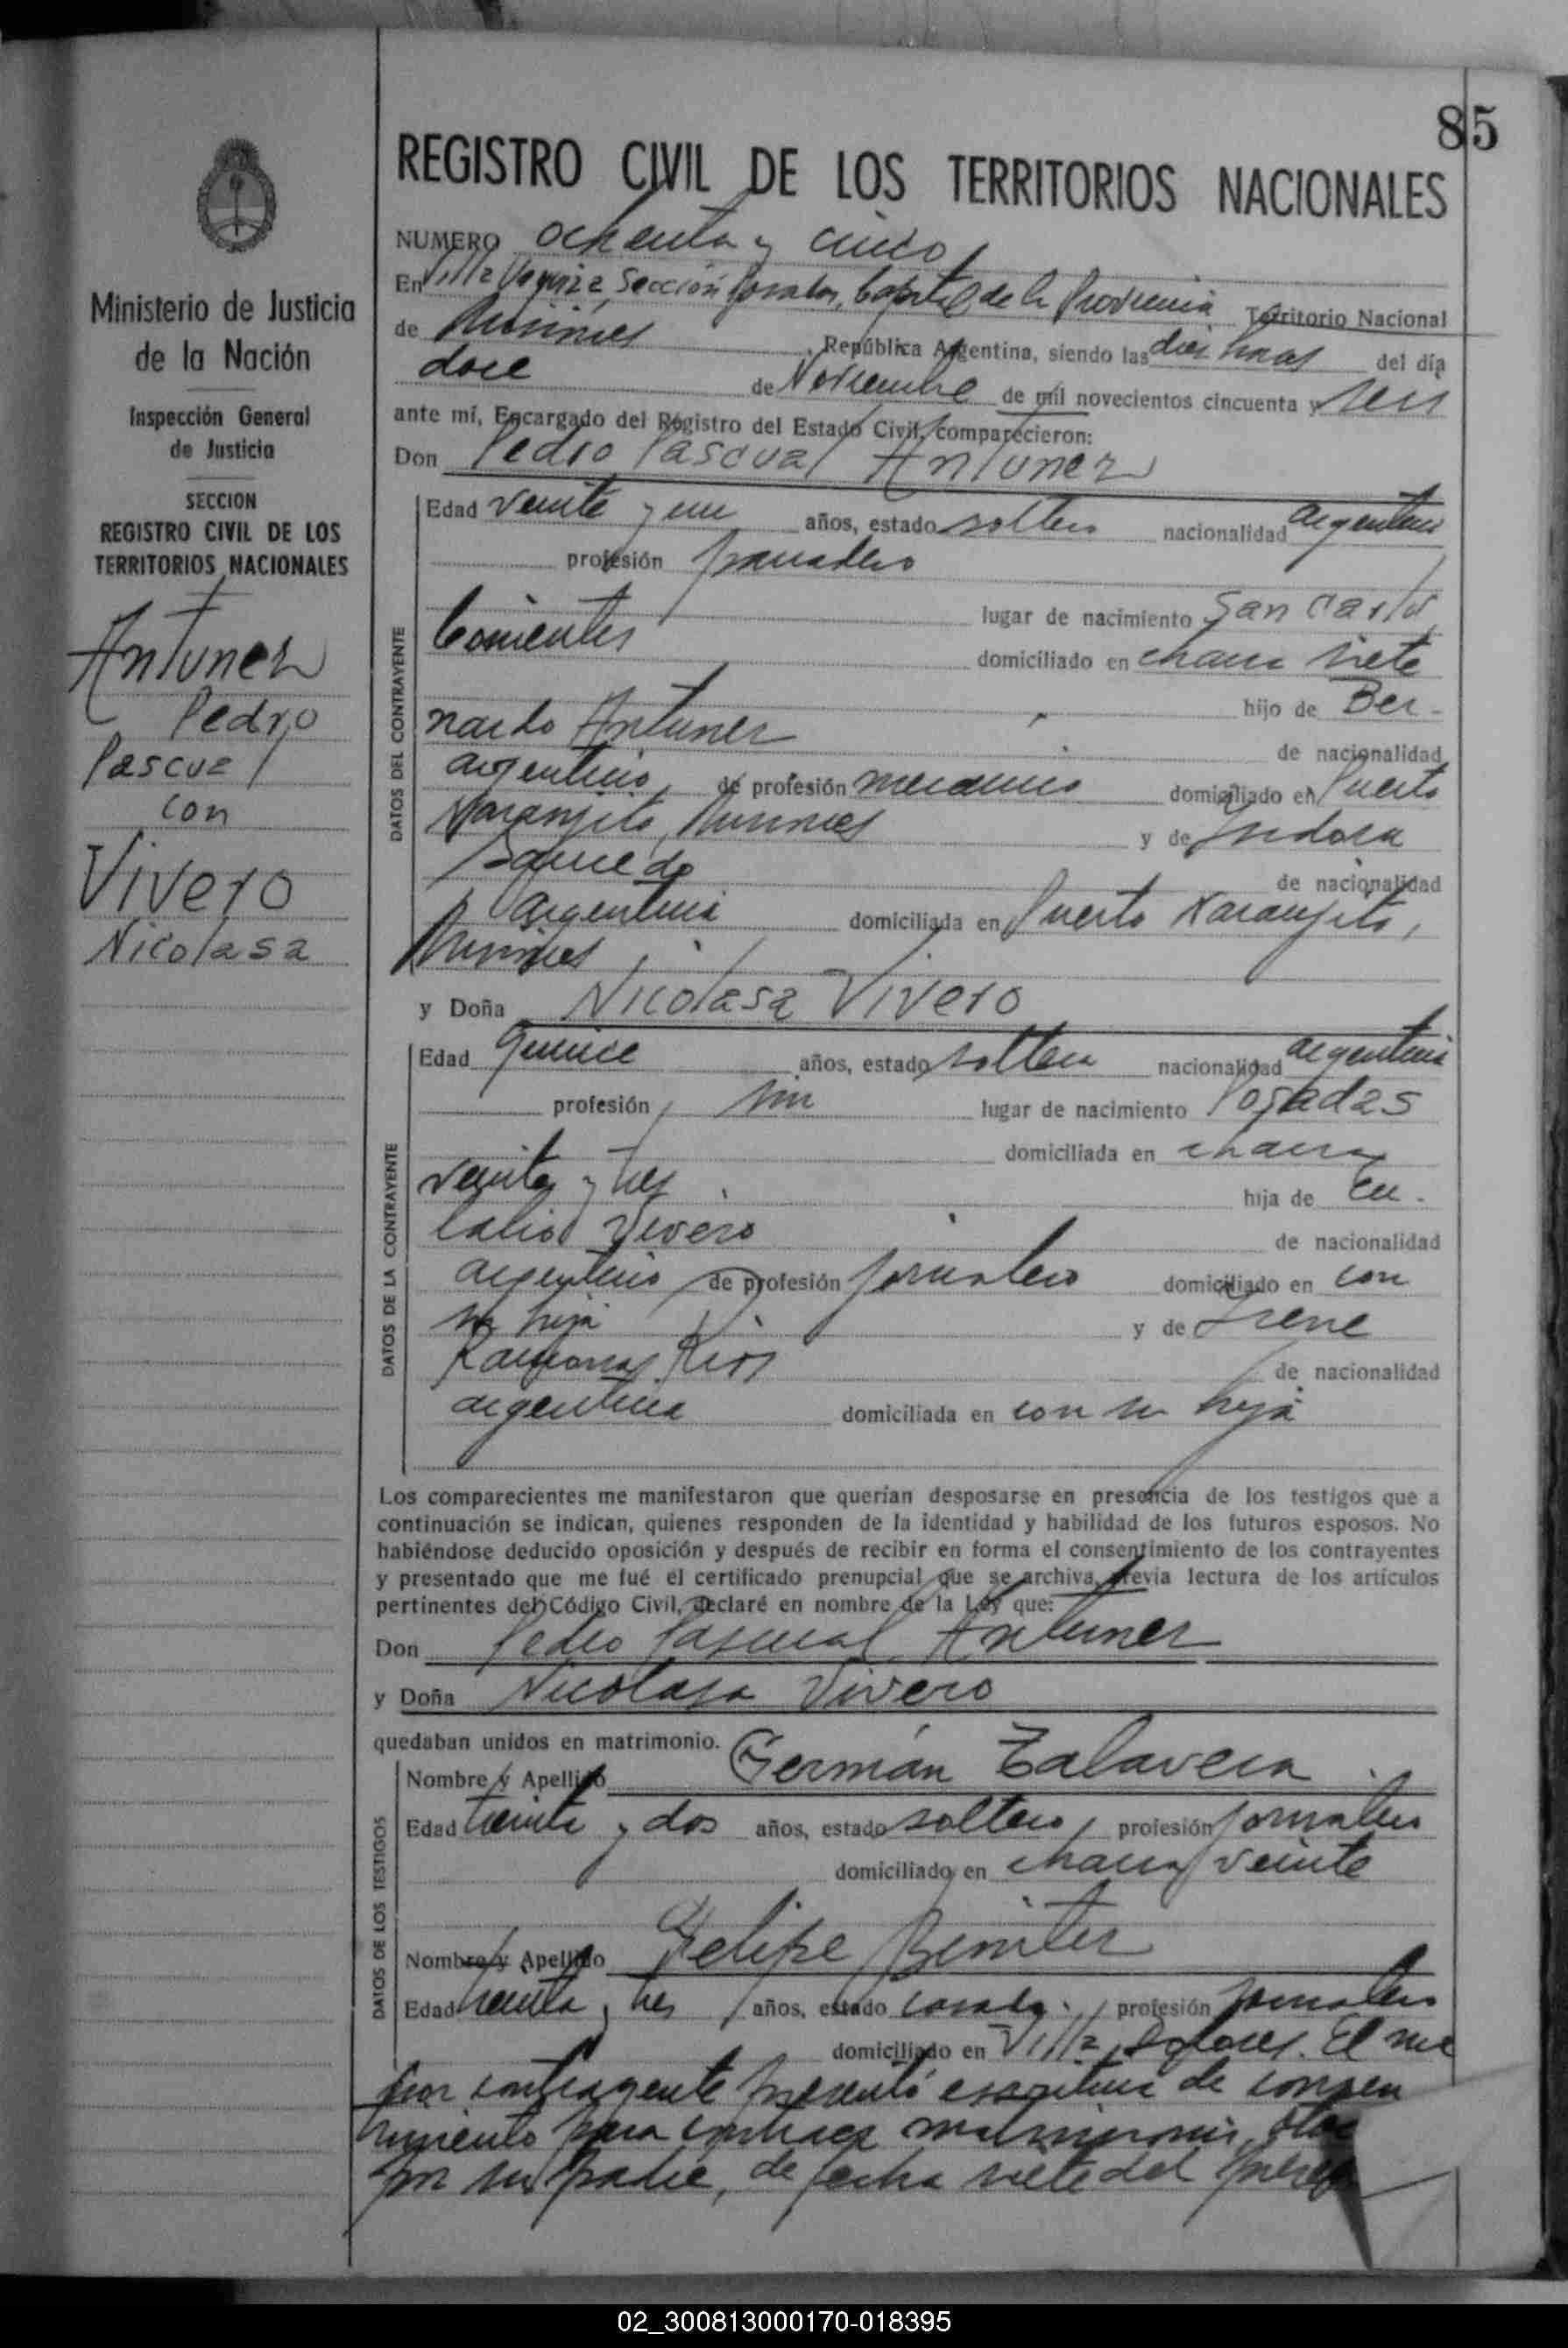 85
REGISTRO CIVIL DE LOS TERRITORIOS NACIONALES
NUMERO ochenta y cinco
En Villa Urquiza, Sección Posadas, Capital de la Provincia Territorio Nacional
de Misiones, República Argentina, siendo las diez horas del día
doce de Noviembre de mil novecientos cincuenta y seis
ante mí, Encargado del Registro del Estado Civil, comparecieron:
Don Pedro Pascual Antunez
Edad veinte y un años, estado soltero nacionalidad argentina
profesión panadero
lugar de nacimiento San Carlos
Corrientes domiciliado en chacra siete
hijo de Ber-
nardo Antunez de nacionalidad
argentino, de profesión mecánico domiciliado en Puerto
Naranjito, Misiones y de Isidora
de nacionalidad
Argentina domiciliada en Puerto Naranjito,
Misiones
y Doña Nicolasa Vivero
Edad quince años, estado soltera nacionalidad argentina
profesión sin lugar de nacimiento Posadas
domiciliada en chacra
veinte y tres hija de Eu-
lalio Vivero de nacionalidad
argentino de profesión jornalero domiciliado en con
su hija y de Irene
Ramona Rios de nacionalidad
argentina domiciliada en con su hija
Los comparecientes me manifestaron que querían desposarse en presencia de los testigos que a
continuación se indican, quienes responden de la identidad y habilidad de los futuros esposos. No
habiéndose deducido oposición y después de recibir en forma el consentimiento de los contrayentes
y presentado que me fué el certificado prenupcial que se archiva, previa lectura de los artículos
pertinentes del Código Civil, declaré en nombre de la Ley que:
Don Pedro Pascual Antunez
y Doña Nicolasa Vivero
quedaban unidos en matrimonio.
Nombre y Apellido Germán Talavera
Edad treinta y dos años, estado soltero, profesión jornalero
domiciliado en chacra veinte
Nombre y Apellido Felipe Benitez
Edad treinta y tres años, estado casado, profesión jornalero
domiciliado en Villa Dolores. El me
nor contrayente presentó escritura de consen
timiento para contraer matrimonio,
por su padre, de fecha siete del
DATOS DEL CONTRAYENTE
DATOS DE LA CONTRAYENTE
DATOS DE LOS TESTIGOS
Ministerio de Justicia
de la Nación
Inspección General
de Justicia
SECCION
REGISTRO CIVIL DE LOS
TERRITORIOS NACIONALES
Antunez
Pedro
Pascual
con
Vivero
Nicolasa
02_300813000170-018395